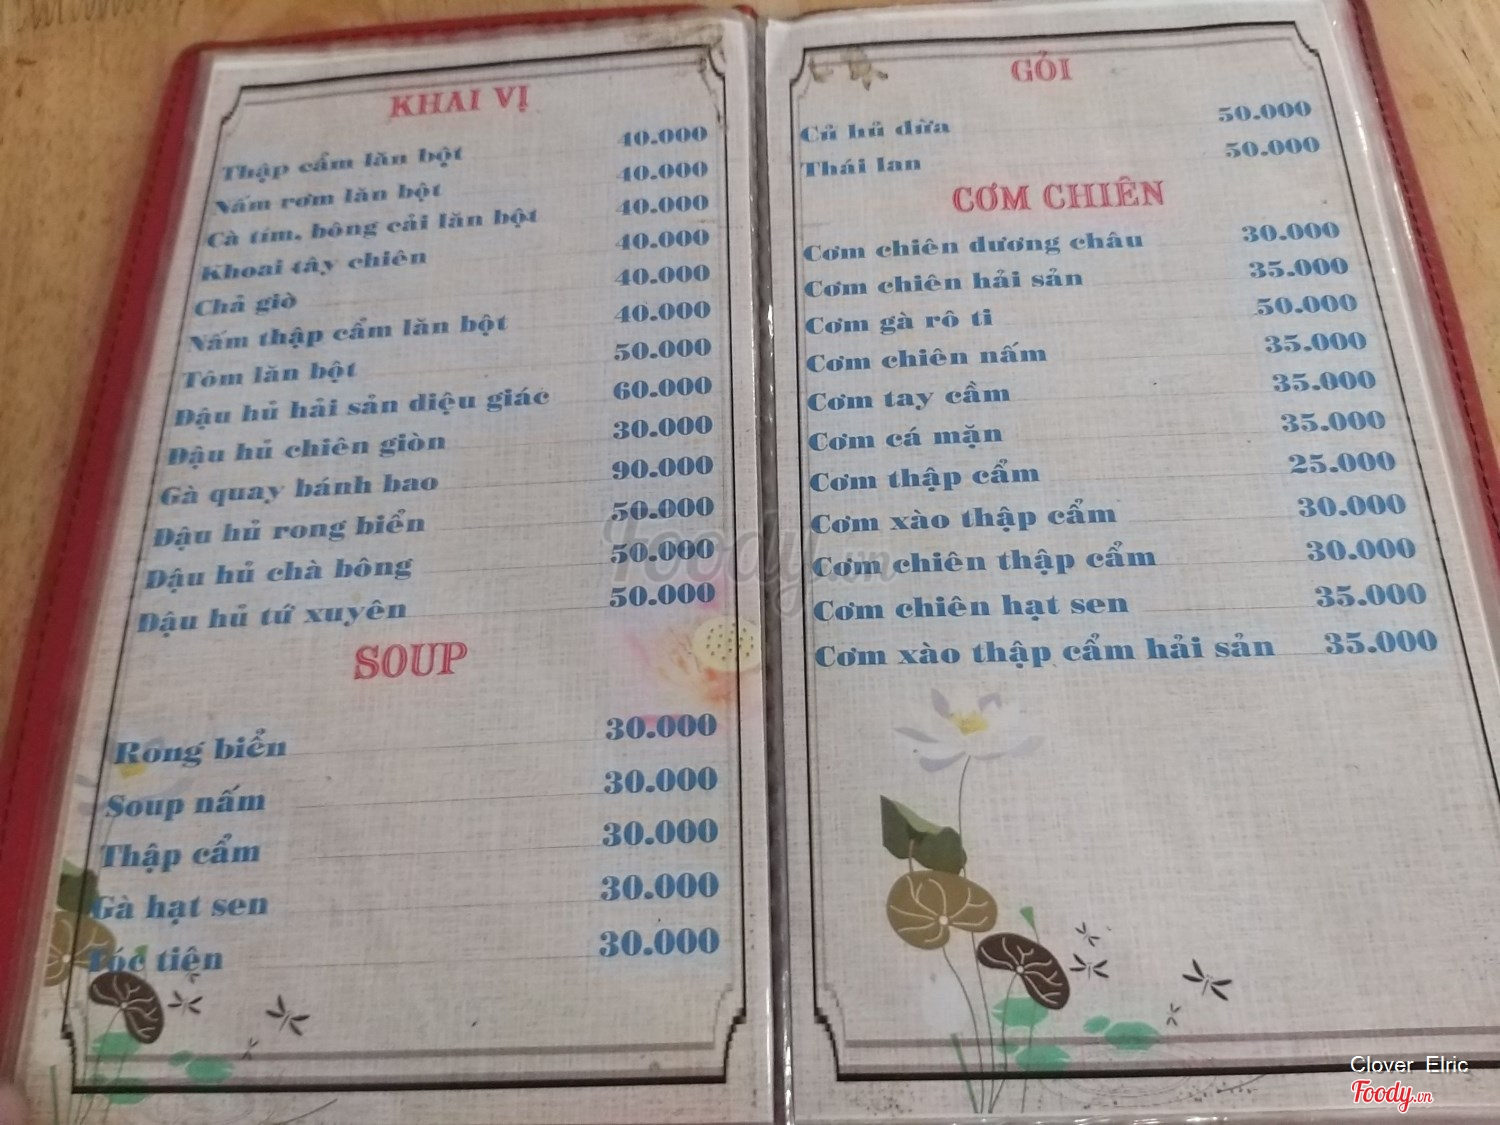 KHAI VỊ
Thập cẩm lăn bột 40.000
Nấm rơm lăn bột 40.000
Cà tím, bông cải lăn bột 40.000
Khoai tây chiên 40.000
Chả giò 40.000
Nấm thập cẩm lăn bột 40.000
Tôm lăn bột 50.000
Đậu hủ hải sản diệu giác 60.000
Đậu hủ chiên giòn 30.000
Gà quay bánh bao 90.000
Đậu hủ rong biển 50.000
Đậu hủ chà bông 50.000
Đậu hủ tứ xuyên 50.000
SOUP
Rong biển 30.000
Soup nấm 30.000
Thập cẩm 30.000
Gà hạt sen 30.000
Tóc tiên 30.000
GỎI
Củ hủ dừa 50.000
Thái lan 50.000
CƠM CHIÊN
Cơm chiên dương châu 30.000
Cơm chiên hải sản 35.000
Cơm gà rô ti 50.000
Cơm chiên nấm 35.000
Cơm tay cầm 35.000
Cơm cá mặn 35.000
Cơm thập cẩm 25.000
Cơm xào thập cẩm 30.000
Cơm chiên thập cẩm 30.000
Cơm chiên hạt sen 35.000
Cơm xào thập cẩm hải sản 35.000
Foody.vn
Clover Elric
Foody.vn